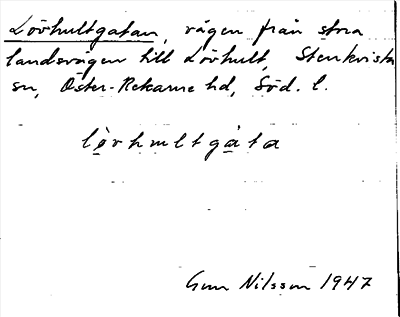 Lövhultgatan, vägen från stora
landsvägen till Lövhult, Stenkvista
sn, Öster-Rekarne hd, Söd. l.
lövhultgata
Gun Nilsson 1947